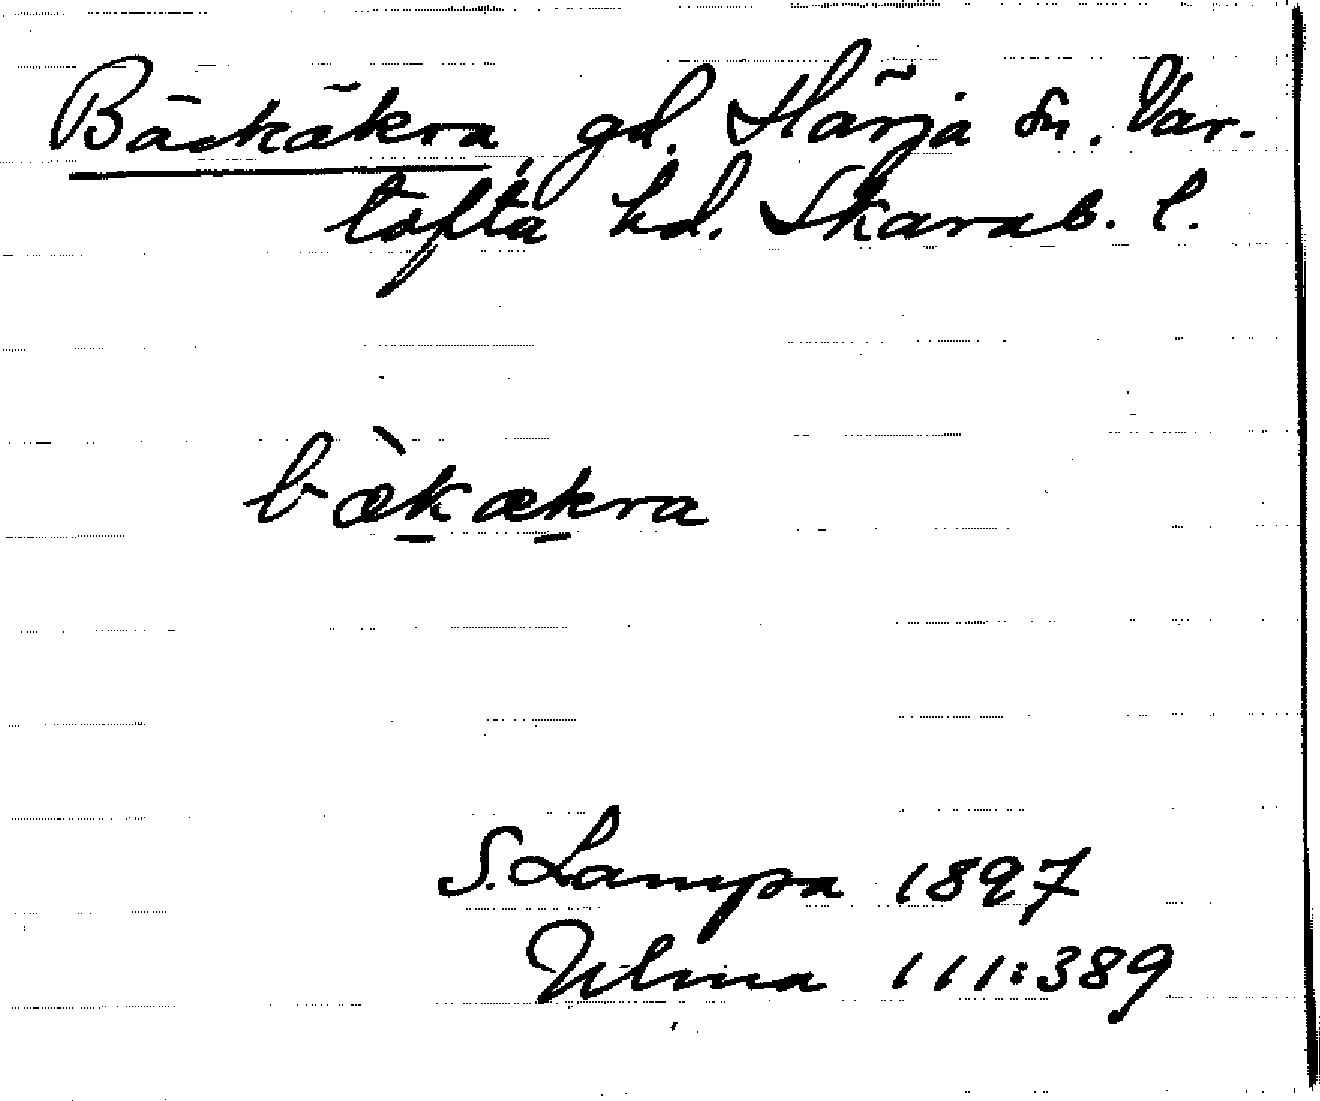 Bäckäkra, gd. Härja sn. Var-
tofta hd. Skarab. l.
bæ̀kækra
S. Lampa 1897
Ulma 111:389